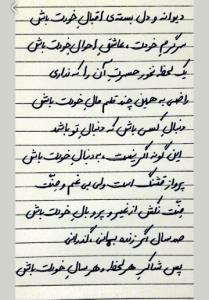 دیوانه و دل بسته‌ی اقبال خودت باش
سرگرم خودت، عاشق احوال خودت باش
یک لحظه نخور حسرت آن را که نداری
راضی به همین چند قلم مال خودت باش
دنبال کسی باش که دنبال تو باشد
این گونه اگر نیست، به دنبال خودت باش
پرواز قشنگ است ولی بی غم و منت
منت نکش از غیر و پر و بال خودت باش
صد سال اگر زنده بمانی، گذرانی
پس شاکر هر لحظه و هر سال خودت باش